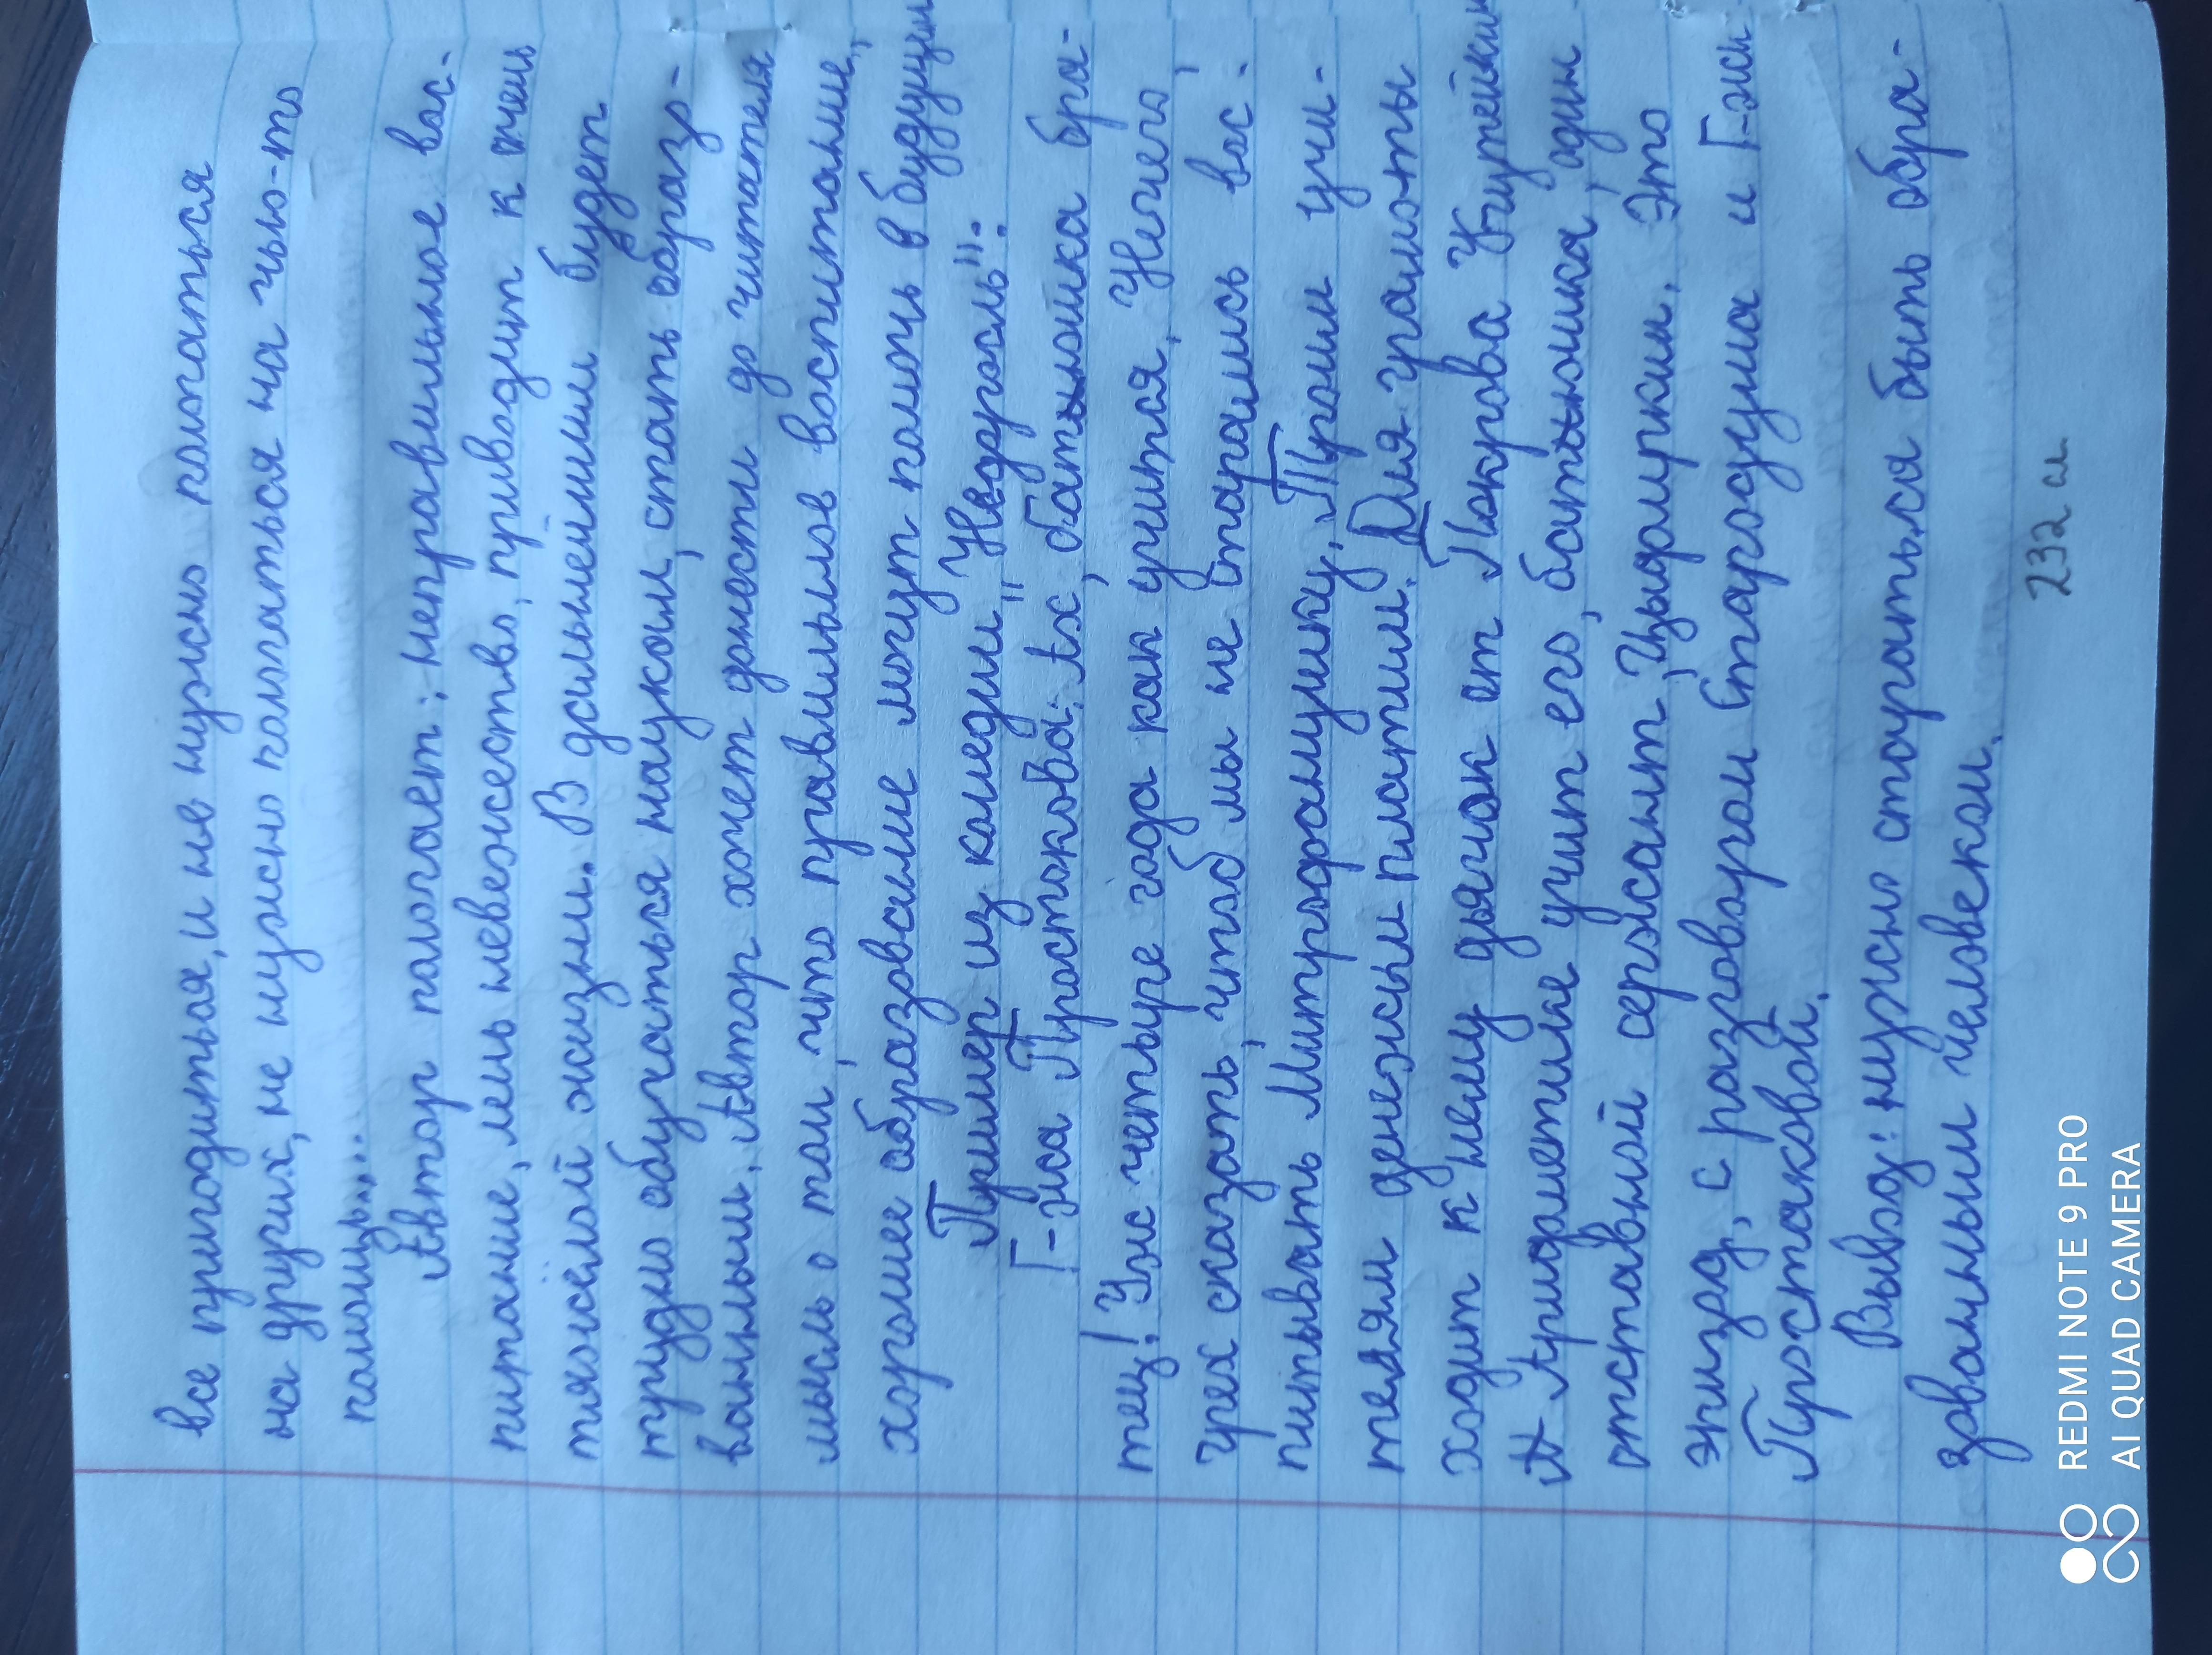 все пригодиться, и не нужно пологаться
на других, не нужно пологаться на чью-то
помощь...
Автор пологает: неправильное вос-
питание, лень невежество, приводит к очень
тяжёлой жизни. В дсильнейшим будет
трудно обучаться наукам, стать образо-
ванным. Автор хочет донести до читателя
мысль о том, что правильное воспитание,
хорошее образование могут помочь в будущим
Пример из комедии "Недоросль":
Г-жа Простокова: Ах, батюшка бра-
тец! Уже четыре года как учится. Нечего,
грех сказать, чтоб мы не старались вос-
питывать Митрофанушку. Троим учи-
телям денежки платим. Для грамоты
ходит к нему дьячок от Покрова Кутейкин
А Аридметике учит его, батюшка, один
отставной сержант, Цыфиркин. Это
эпизод, с разговором Стародума и Г-жи
Простаковой.
Вывод: нужно стараться быть обра-
зованным человеком.
232 сл
REDMI NOTE 9 PRO
AI QUAD CAMERA